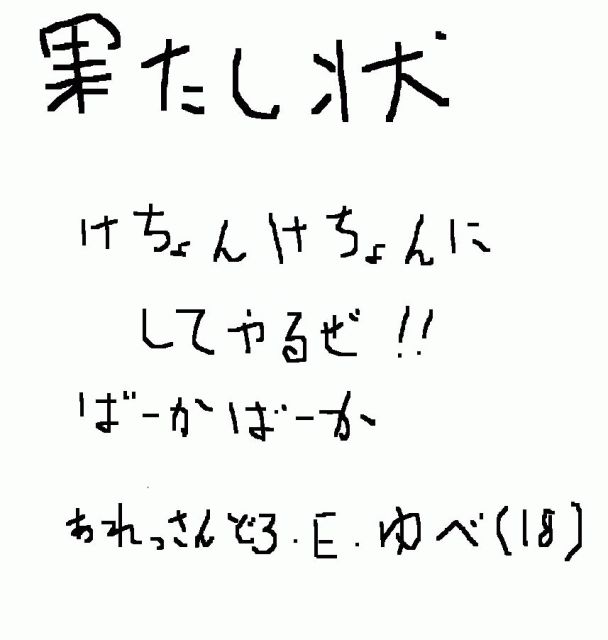 果たし状
けちょんけちょんに
してやるぜ!!
ばーかばーか
あれっさんどろ.E.ゆべ(18)